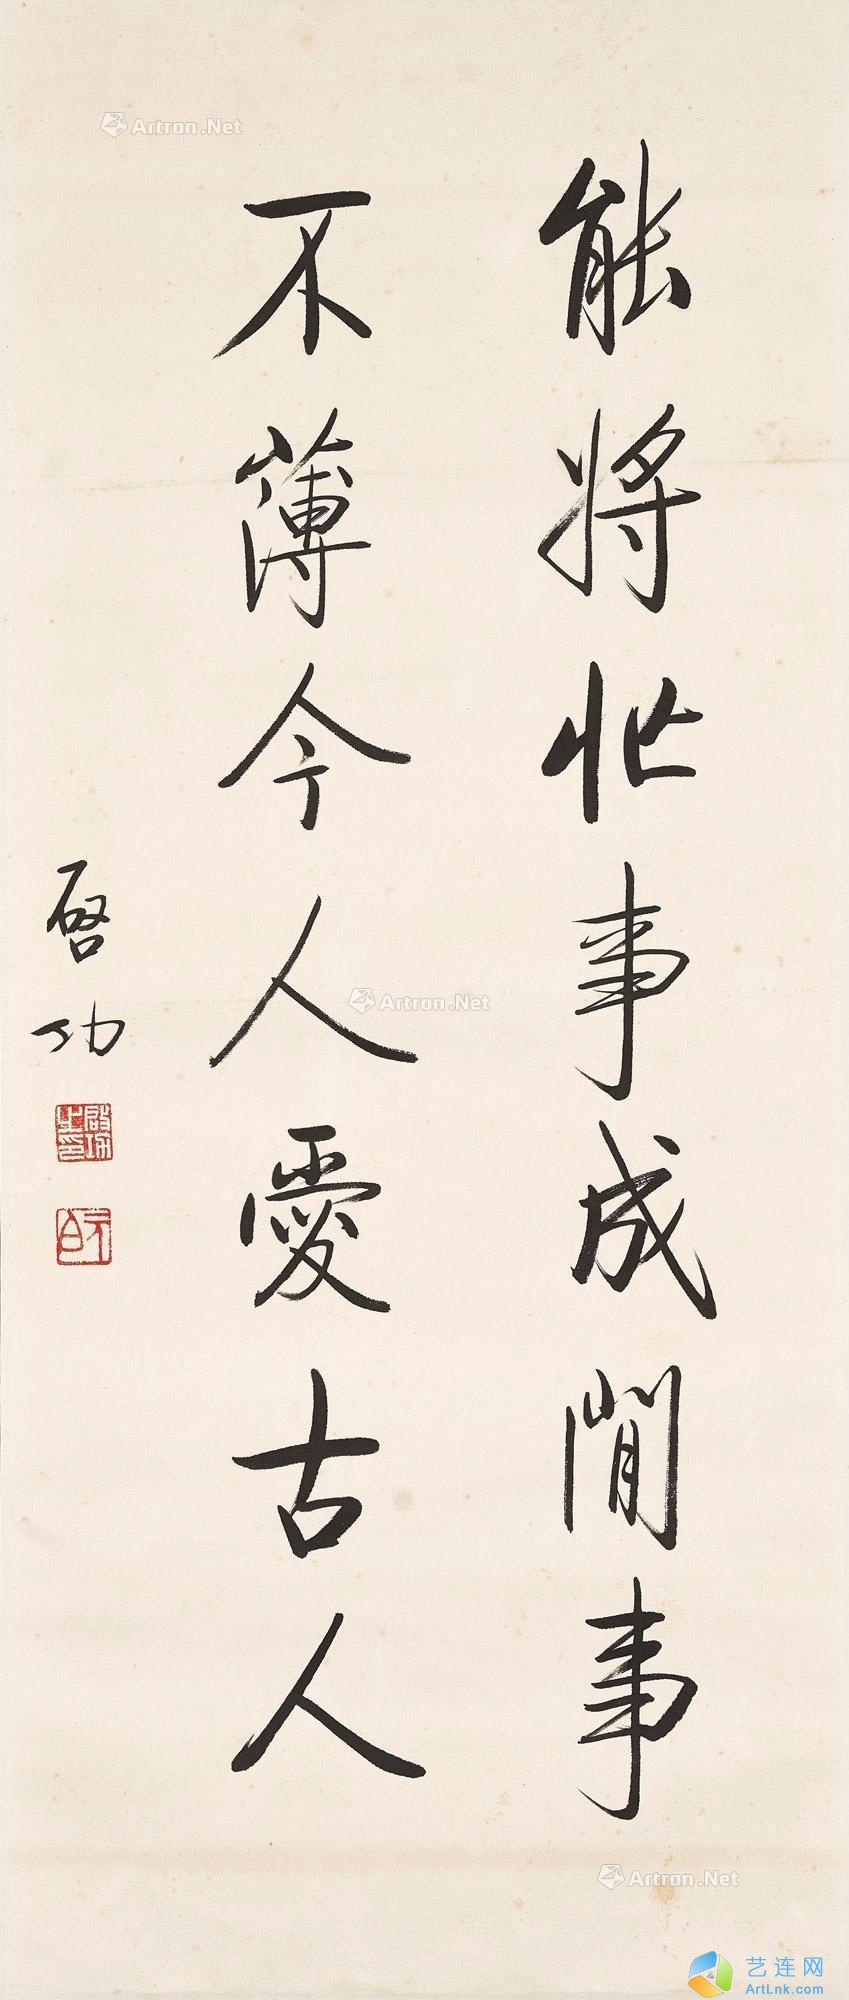 能将忙事成閒事
不薄今人愛古人
启功
啟功之印
Artron.Net
Artron.Net
Artron.Net
Artron.Net
艺连网
ArtLnk.com